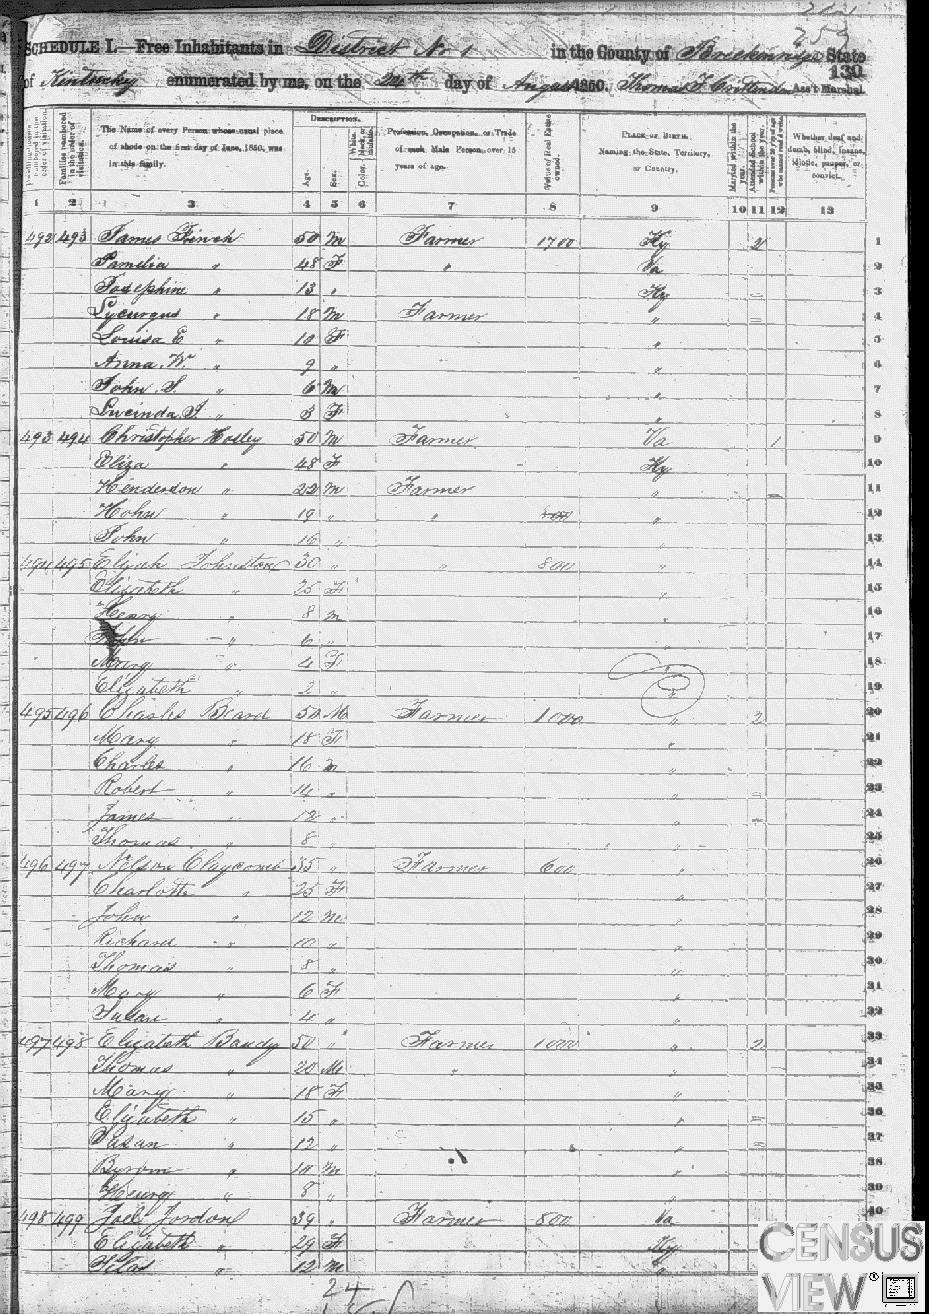 259
SCHEDULE I.—Free Inhabitants in District No 1 in the County of Breckinridge State
of Kentucky enumerated by me, on the 24th day of August 1850. Thomas J. Crittenden Ass't Marshal.
130
The Name of every Person whose usual place of abode on the first day of June, 1850, was in this family.
DESCRIPTION.
Age. Sex. Color.
Profession, Occupation, or Trade of each Male Person over 15 years of age.
Value of Real Estate owned.
PLACE OF BIRTH. Naming the State, Territory, or Country.
Married within the year.
Attended School within the year.
Whether deaf and dumb, blind, insane, idiotic, pauper, or convict.
1 2 3 4 5 6 7 8 9 10 11 12 13
492 493 James Finch 50 M Farmer 1700 Ky 2 1
Pamelia " 48 F " Va 2
Josephine " 13 " Ky 3
Lycurgus " 18 M Farmer " 4
Louisa E " 10 F " 5
Anna W. " 9 " " 6
John S. " 6 M " 7
Lucinda J. " 3 F " 8
493 494 Christopher Holley 50 M Farmer Va 1 9
Eliza " 48 F Ky 10
Henderson " 22 M Farmer " 11
Hohn " 19 " " " 12
John " 16 " " 13
494 495 Elijah Johnston 30 " " 800 " 14
Elizabeth " 25 F " 15
Henry " 8 m " 16
John " 6 " 17
Mary " 4 F 18
Elizabeth " 2 " " 19
495 496 Charles Beard 50 M Farmer 1000 " 2 20
Mary " 18 F " 21
Charles " 16 m " 22
Robert " 14 " " 23
James " 12 " " 24
Thomas " 8 " " 25
496 497 Nelson Claycomb 35 " Farmer 600 " 26
Charlotte " 25 F " 27
John " 12 m " 28
Richard " 10 " " 29
Thomas " 8 " " 30
Mary " 6 F " 31
Susan " 4 " " 32
497 498 Elizabeth Bandy 50 " Farmer 1000 " 2 33
Thomas " 20 M " " 34
Mary " 18 F " 35
Elizabeth " 15 " " 36
Susan " 12 " " 37
Byrom " 10 m " 38
Henry " 8 " " 39
498 499 Joel Jordon 39 " Farmer 800 Va 40
Elizabeth " 29 F Ky
Silas " 12 m "
24
CENSUS
VIEW®